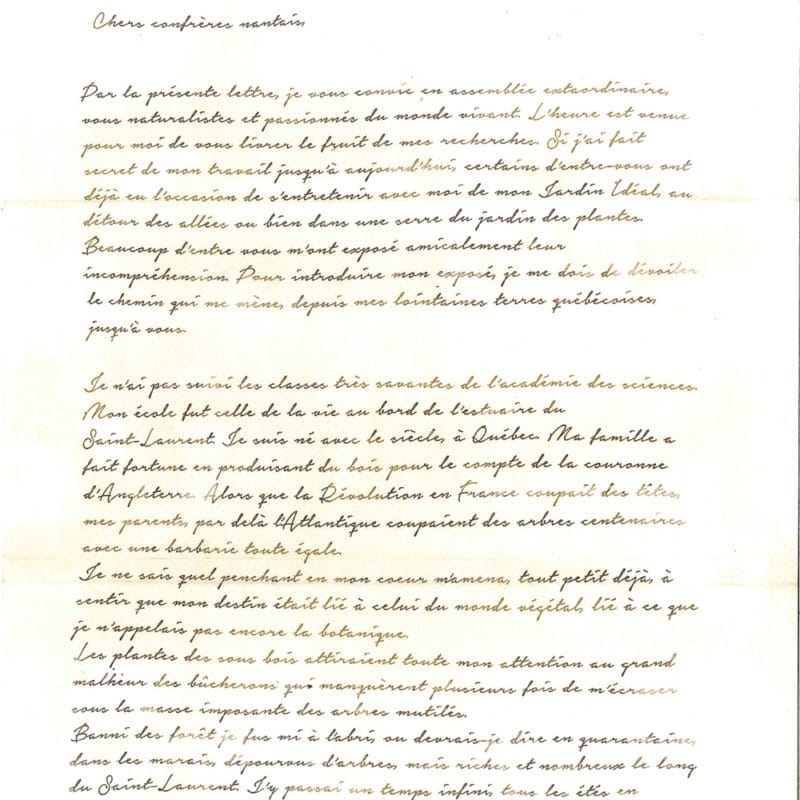 Chers confrères nantais,
Par la présente lettre, je vous convie en assemblée extaordinaire,
vous naturalistes et passionnés du monde vivant. L'heure est venue
pour moi de vous livrer le fruit de mes recherches. Si j'ai fait
secret de mon travail jusqu'à aujourd'hui, certains d'entre-vous ont
déjà eu l'occasion de s'entretenir avec moi de mon Jardin Idéal, au
détour des allées ou bien dans une serre du jardin des plantes.
Beaucoup d'entre vous m'ont exposé amicalement leur
incompréhension. Pour introduire mon exposé, je me dois de dévoiler
le chemin qui me mène, depuis mes lointaines terres québécoises,
jusqu'à vous.
Je n'ai pas suivi les classes très savantes de l'académie des sciences.
Mon école fut celle de la vie au bord de l'estuaire du
Saint-Laurent. Je suis né avec le siècle, à Québec. Ma famille a
fait fortune en produisant du bois pour le compte de la couronne
d'Angleterre. Alors que la Révolution en France coupait des têtes,
mes parents, par delà l'Atlantique coupaient des arbres centenaires
avec une barbarie toute égale.
Je ne sais quel penchant en mon coeur m'amena, tout petit déjà, à
sentir que mon destin était lié à celui du monde végétal, lié à ce que
je n'appelais pas encore la botanique.
Les plantes des sous bois attiraient toute mon attention au grand
malheur des bûcherons qui manquèrent plusieurs fois de m'écraser
sous la masse imposante des arbres mutilés.
Banni des forêt je fus mi à l'abri, ou devrais-je dire en quarantaine,
dans les marais, dépourvus d'arbres, mais riches et nombreux le long
du Saint-Laurent. J'y passai un temps infini, tous les étés en